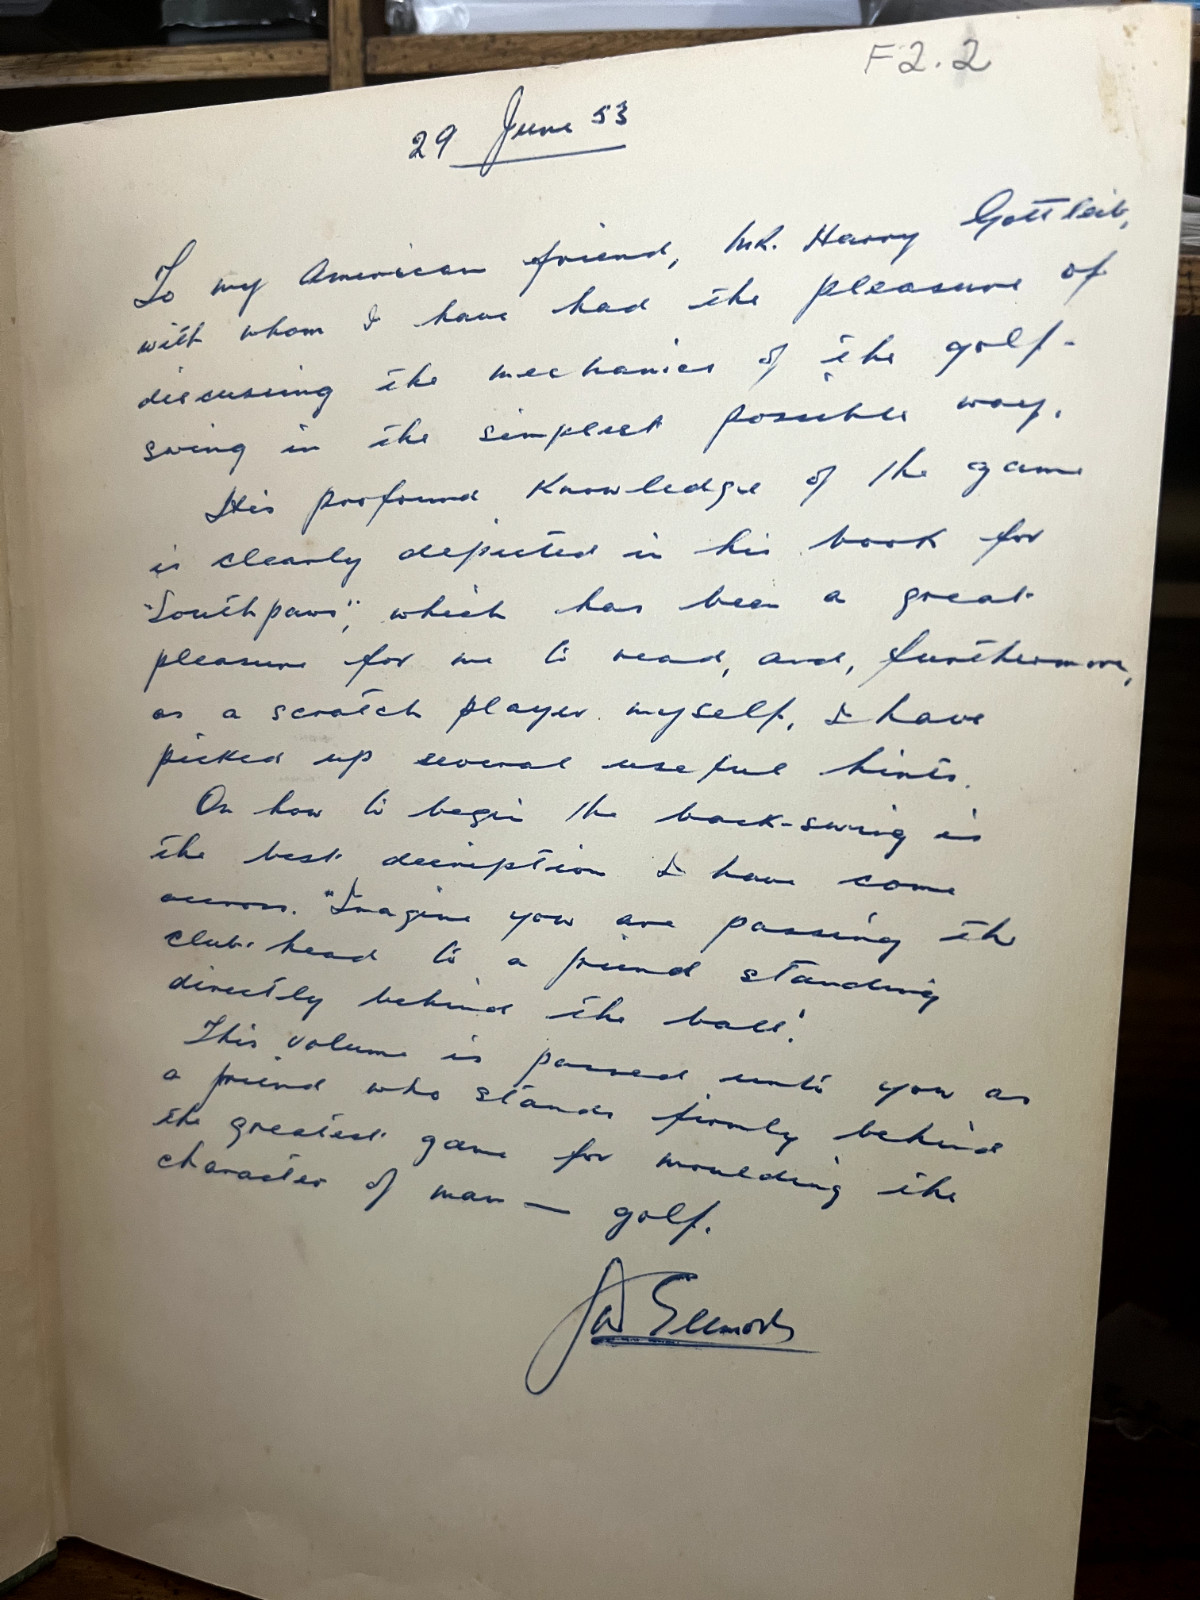 F2.2
29 June 53
To my American friend, Mr. Harry Gottlieb,
with whom I have had the pleasure of
discussing the mechanics of the golf-
swing in the simplest possible way.
His profound knowledge of the game
is clearly depicted in his book for
"Southpaws", which has been a great
pleasure for me to read, and, furthermore,
as a scratch player myself, I have
picked up several useful hints.
On how to begin the back-swing is
the best description I have come
across. "Imagine you are passing the
club-head to a friend standing
directly behind the ball".
This volume is passed unto you as
a friend who stands firmly behind
the greatest game for moulding the
character of man — golf.